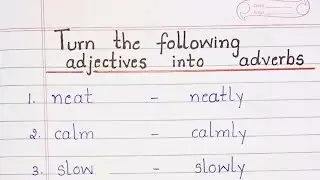 Turn the following
adjectives into adverbs
1. neat - neatly
2. calm - calmly
3. slow - slowly